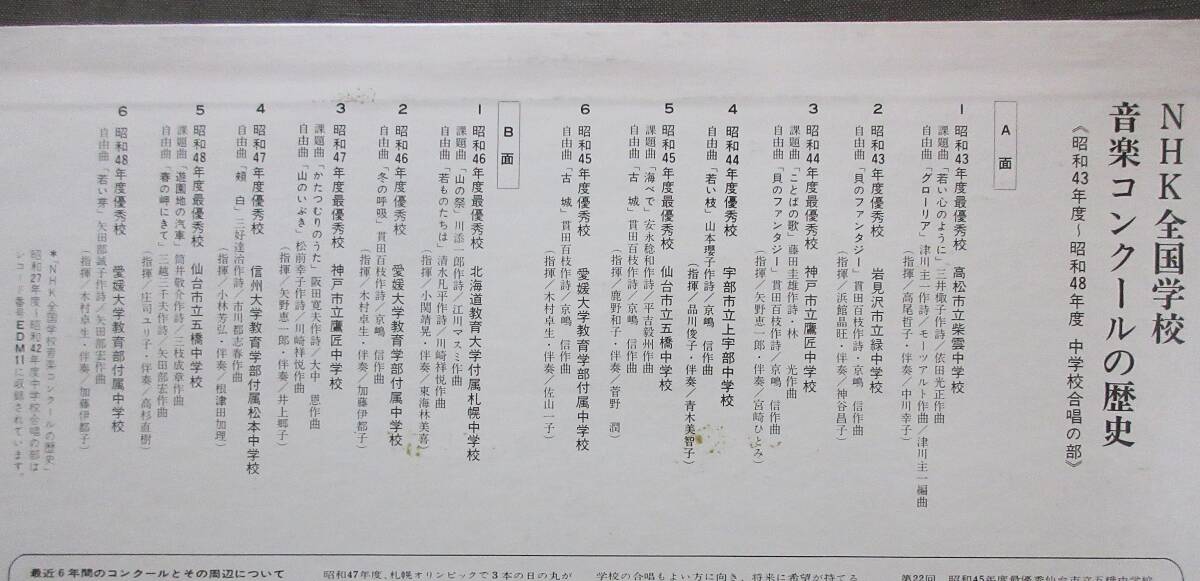 NHK全国学校
音楽コンクールの歴史
《昭和43年度〜昭和48年度 中学校合唱の部》
A面
1 昭和43年度最優秀校 高松市立紫雲中学校
課題曲「若い心のように」三井俶子作詩/依田光正作曲
自由曲「グローリア」津川主一作詩/モーツアルト作曲/津川主一編曲
(指揮/高尾哲子・伴奏/中川幸子)
2 昭和43年度優秀校 岩見沢市立緑中学校
自由曲「貝のファンタジー」貫田百枝作詩・京嶋 信作曲
(指揮/浜館晶旺・伴奏/神谷昌子)
3 昭和44年度最優秀校 神戸市立鷹匠中学校
課題曲「ことばの歌」藤田圭雄作詩・林 光作曲
自由曲「貝のファンタジー」貫田百枝作詩/京嶋 信作曲
(指揮/矢野恵一郎・伴奏/宮崎ひとみ)
4 昭和44年度優秀校 宇部市立上宇部中学校
自由曲「若い枝」山本瓔子作詩/京嶋 信作曲
(指揮/品川俊子・伴奏/青木美智子)
5 昭和45年度最優秀校 仙台市立五橋中学校
課題曲「海べで」安永稔和作詩/平吉毅州作曲
自由曲「古 城」貫田百枝作詩/京嶋 信作曲
(指揮/鹿野和子・伴奏/菅野 潤)
6 昭和45年度優秀校 愛媛大学教育学部付属中学校
自由曲「古 城」貫田百枝作詩/京嶋 信作曲
(指揮/木村卓生・伴奏/佐山一子)
B面
1 昭和46年度最優秀校 北海道教育大学付属札幌中学校
課題曲「山の祭」川添一郎作詩/江川マスミ作曲
自由曲「若ものたちは」清水凡平作詩/川崎祥悦作曲
(指揮/小関靖晃・伴奏/東海林美喜)
2 昭和46年度優秀校 愛媛大学教育学部付属中学校
自由曲「冬の呼吸」貫田百枝作詩/京嶋 信作曲
(指揮/木村卓生・伴奏/加藤伊都子)
3 昭和47年度最優秀校 神戸市立鷹匠中学校
課題曲「かたつむりのうた」阪田寛夫作詩/大中 恩作曲
自由曲「山のいぶき」松前幸子作詩/川崎祥悦作曲
(指揮/矢野恵一郎・伴奏/井上郷子)
4 昭和47年度優秀校 信州大学教育学部付属松本中学校
自由曲「頬 白」三好達治作詩/市川都志春作曲
(指揮/小林芳弘・伴奏/根津田加理)
5 昭和48年度最優秀校 仙台市立五橋中学校
課題曲「遊園地の汽車」筒井敬介作詩/三枝成章作曲
自由曲「春の岬にきて」三越三千夫作詩/矢田部宏作曲
(指揮/庄司ユリ子・伴奏/高杉直樹)
6 昭和48年度優秀校 愛媛大学教育部付属中学校
自由曲「若い芽」矢田部誠子作詩/矢田部宏作曲
(指揮/木村卓生・伴奏/加藤伊都子)
*「NHK全国学校音楽コンクールの歴史」
昭和27年度〜昭和42年度中学校合唱の部は
レコード番号EDM11に収録されています。
最近6年間のコンクールとその周辺について
昭和47年度、札幌オリンピックで3本の日の丸が
学校の合唱もよい方に向き、将来に希望が持てる
第22回 昭和45年度最優秀仙台市立五橋中学校